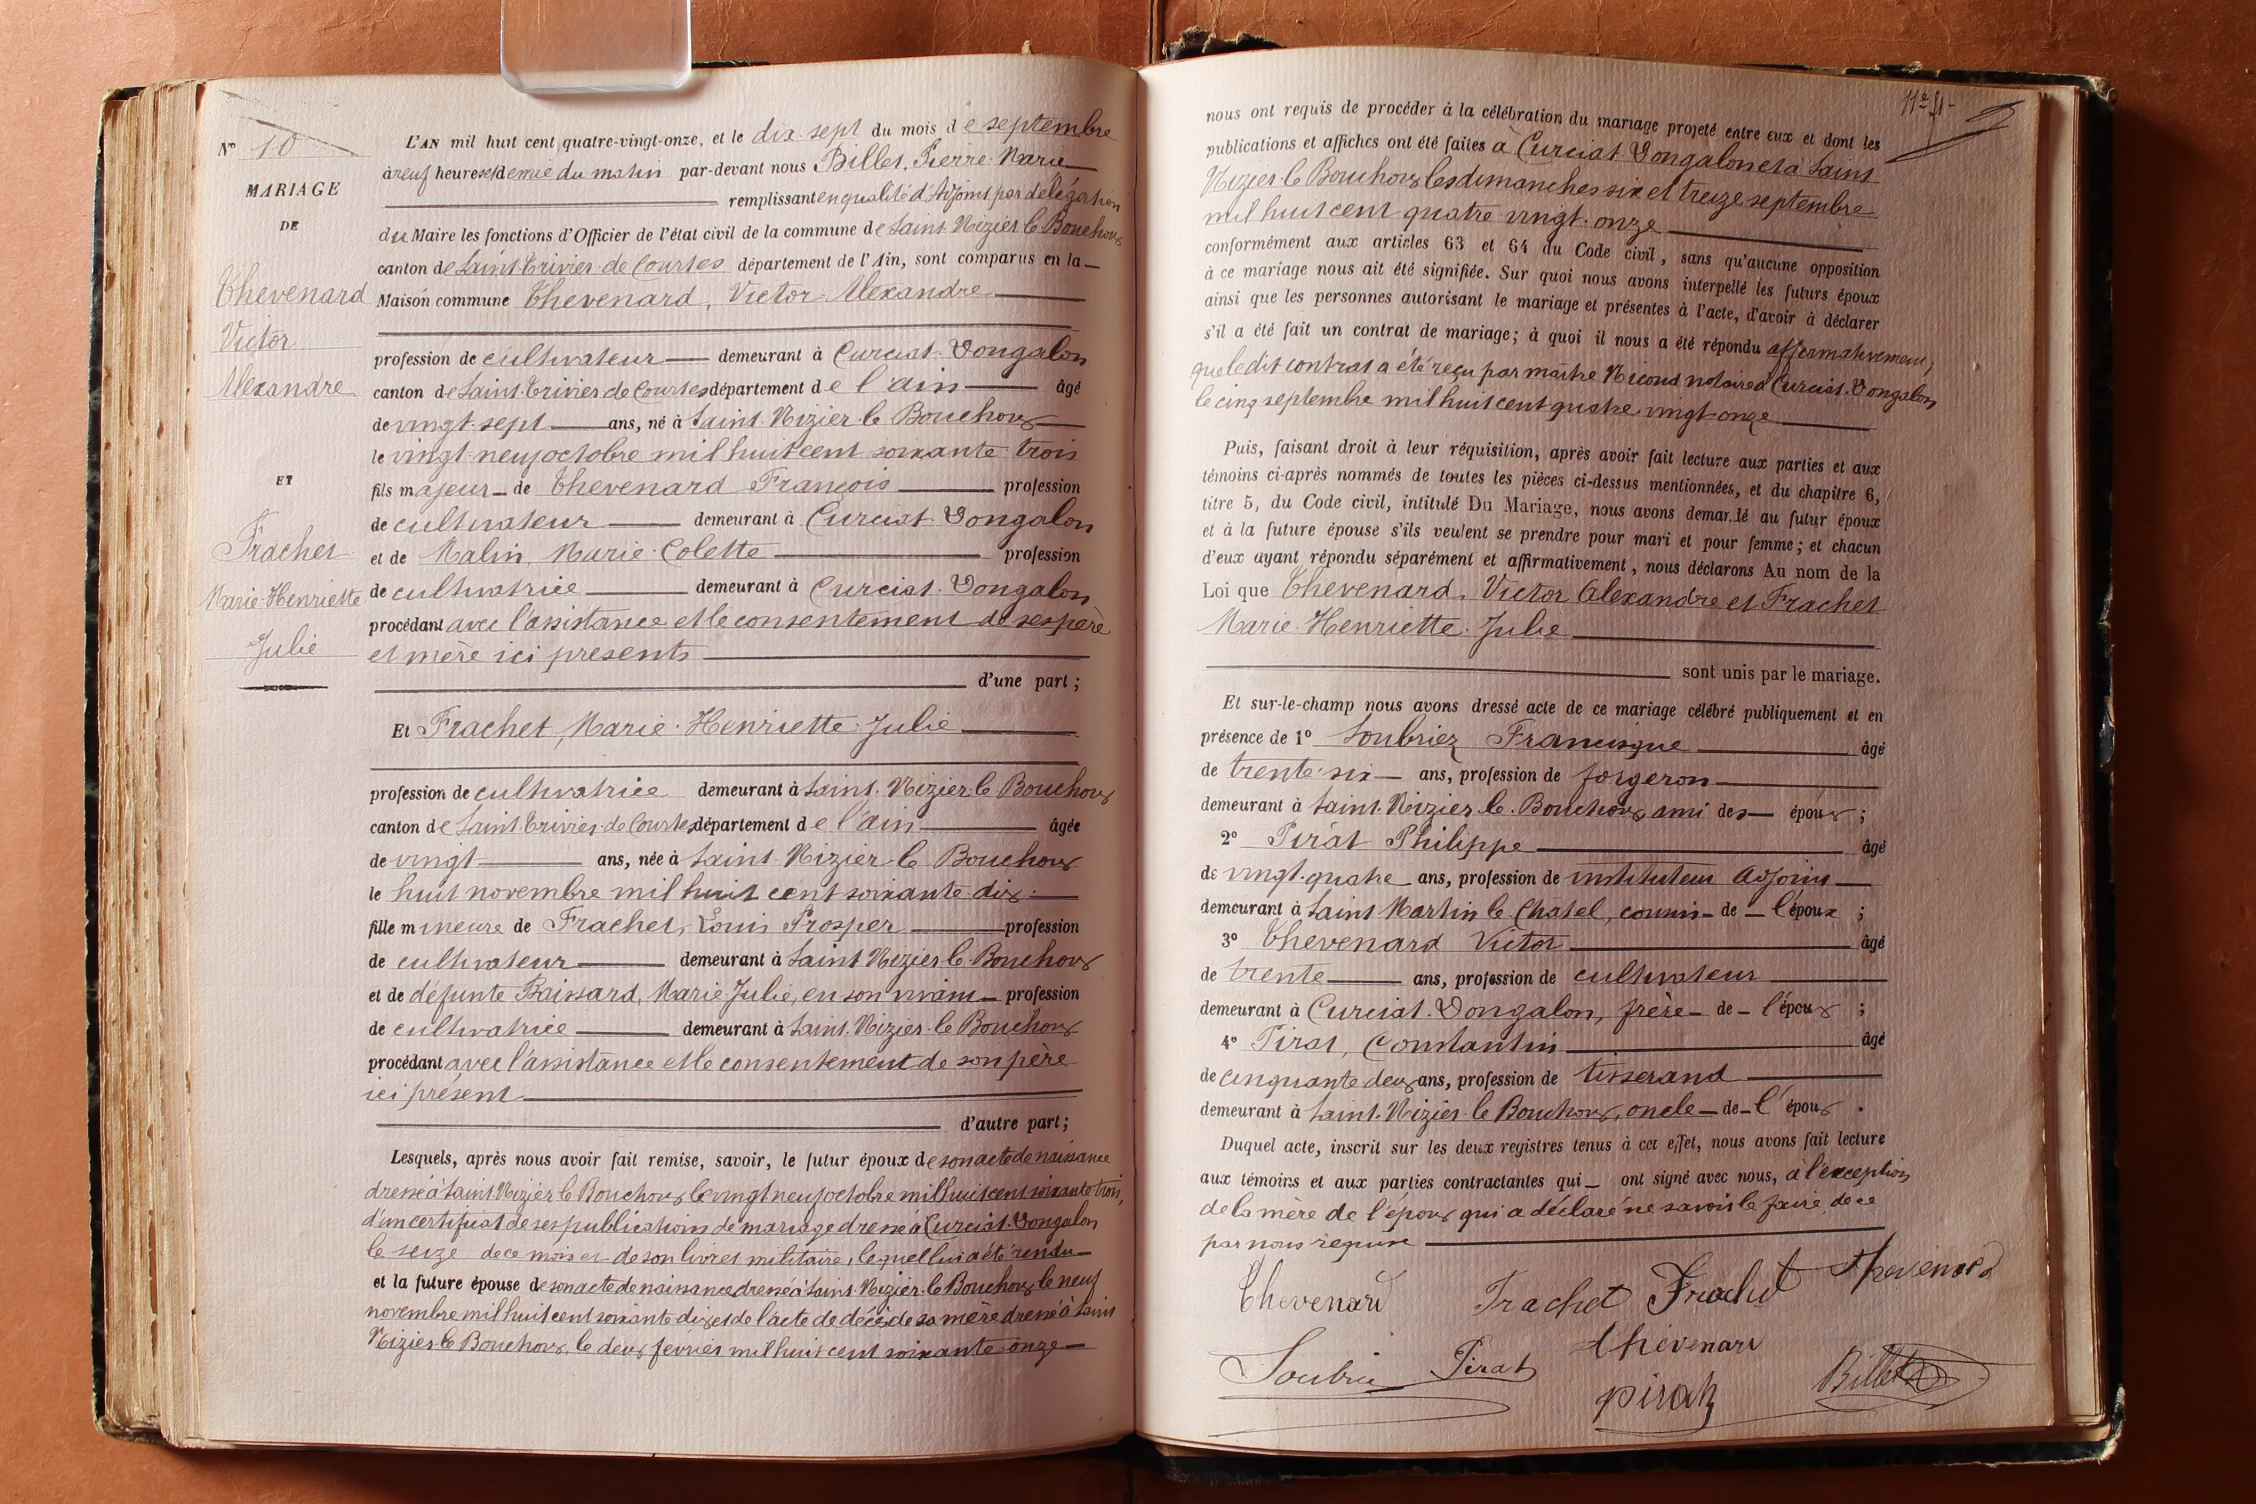 N° 10
MARIAGE
DE
Thevenard
Victor
Alexandre
ET
Frachet
Marie-Henriette
Julie
L'AN mil huit cent quatre-vingt-onze, et le dix-sept du mois de septembre
à neuf heures et demie du matin par-devant nous Billet, Pierre-Marie
remplissant en qualité d'Adjoint par délégation
du Maire les fonctions d'Officier de l'état civil de la commune de Saint-Nizier-le-Bouchoux
canton de Saint-Trivier-de-Courtes département de l'Ain, sont comparus en la
Maison commune Thevenard, Victor-Alexandre
profession de cultivateur demeurant à Curciat-Dongalon
canton de Saint-Trivier-de-Courtes département de l'ain âgé
de vingt-sept ans, né à Saint-Nizier-le-Bouchoux
le vingt-neuf octobre mil huit cent soixante-trois
fils majeur de Thevenard François profession
de cultivateur demeurant à Curciat-Dongalon
et de Malin, Marie-Colette profession
de cultivatrice demeurant à Curciat-Dongalon
procédant avec l'assistance et le consentement de ses père
et mère ici présents
d'une part ;
Et Frachet, Marie-Henriette-Julie
profession de cultivatrice demeurant à Saint-Nizier-le-Bouchoux
canton de Saint-Trivier-de-Courtes département de l'ain âgée
de vingt ans, née à Saint-Nizier-le-Bouchoux
le huit novembre mil huit cent soixante-dix
fille mineure de Frachet, Louis Prosper profession
de cultivateur demeurant à Saint-Nizier-le-Bouchoux
et de défunte Baissard, Marie Julie, en son vivant profession
de cultivatrice demeurant à Saint-Nizier-le-Bouchoux
procédant avec l'assistance et le consentement de son père
ici présent
d'autre part ;
Lesquels, après nous avoir fait remise, savoir, le futur époux de son acte de naissance
dressé à Saint-Nizier-le-Bouchoux le vingt-neuf octobre mil huit cent soixante-trois,
d'un certificat de ses publications de mariage dressé à Curciat-Dongalon
le seize de ce mois et de son livret militaire, lequel lui a été rendu
et la future épouse de son acte de naissance dressé à Saint-Nizier-le-Bouchoux le neuf
novembre mil huit cent soixante-dix et de l'acte de décès de sa mère dressé à Saint
Nizier-le-Bouchoux, le deux février mil huit cent soixante-onze
nous ont requis de procéder à la célébration du mariage projeté entre eux et dont les
publications et affiches ont été faites à Curciat-Dongalon et à Saint
Nizier-le-Bouchoux les dimanches six et treize septembre
mil huit cent quatre-vingt-onze
conformément aux articles 63 et 64 du Code civil, sans qu'aucune opposition
à ce mariage nous ait été signifiée. Sur quoi nous avons interpellé les futurs époux
ainsi que les personnes autorisant le mariage et présentes à l'acte, d'avoir à déclarer
s'il a été fait un contrat de mariage; à quoi il nous a été répondu affirmativement,
que le dit contrat a été reçu par maître Nicoud notaire à Curciat-Dongalon
le cinq septembre mil huit cent quatre-vingt-onze
Puis, faisant droit à leur réquisition, après avoir fait lecture aux parties et aux
témoins ci-après nommés de toutes les pièces ci-dessus mentionnées, et du chapitre 6,
titre 5, du Code civil, intitulé Du Mariage, nous avons demandé au futur époux
et à la future épouse s'ils veulent se prendre pour mari et pour femme; et chacun
d'eux ayant répondu séparément et affirmativement, nous déclarons Au nom de la
Loi que Thevenard, Victor Alexandre et Frachet
Marie-Henriette-Julie
sont unis par le mariage.
Et sur-le-champ nous avons dressé acte de ce mariage célébré publiquement et en
présence de 1° Soubriez Francisque âgé
de trente-six ans, profession de forgeron
demeurant à Saint-Nizier-le-Bouchoux ami des époux ;
2° Pirat Philippe âgé
de vingt-quatre ans, profession de instituteur adjoint
demeurant à Saint Martin le Chatel, cousin de l'époux ;
3° Thevenard Victor âgé
de trente ans, profession de cultivateur
demeurant à Curciat-Dongalon, frère de l'époux ;
4° Pirat, Constantin âgé
de cinquante-deux ans, profession de tisserand
demeurant à Saint-Nizier-le-Bouchoux, oncle de l'époux .
Duquel acte, inscrit sur les deux registres tenus à cet effet, nous avons fait lecture
aux témoins et aux parties contractantes qui ont signé avec nous, à l'exception
de la mère de l'époux qui a déclaré ne savoir le faire, de ce
par nous requise
Thevenard Frachet Frachet Thevenard
Thévenard
Soubriez Pirat Billet
Pirat